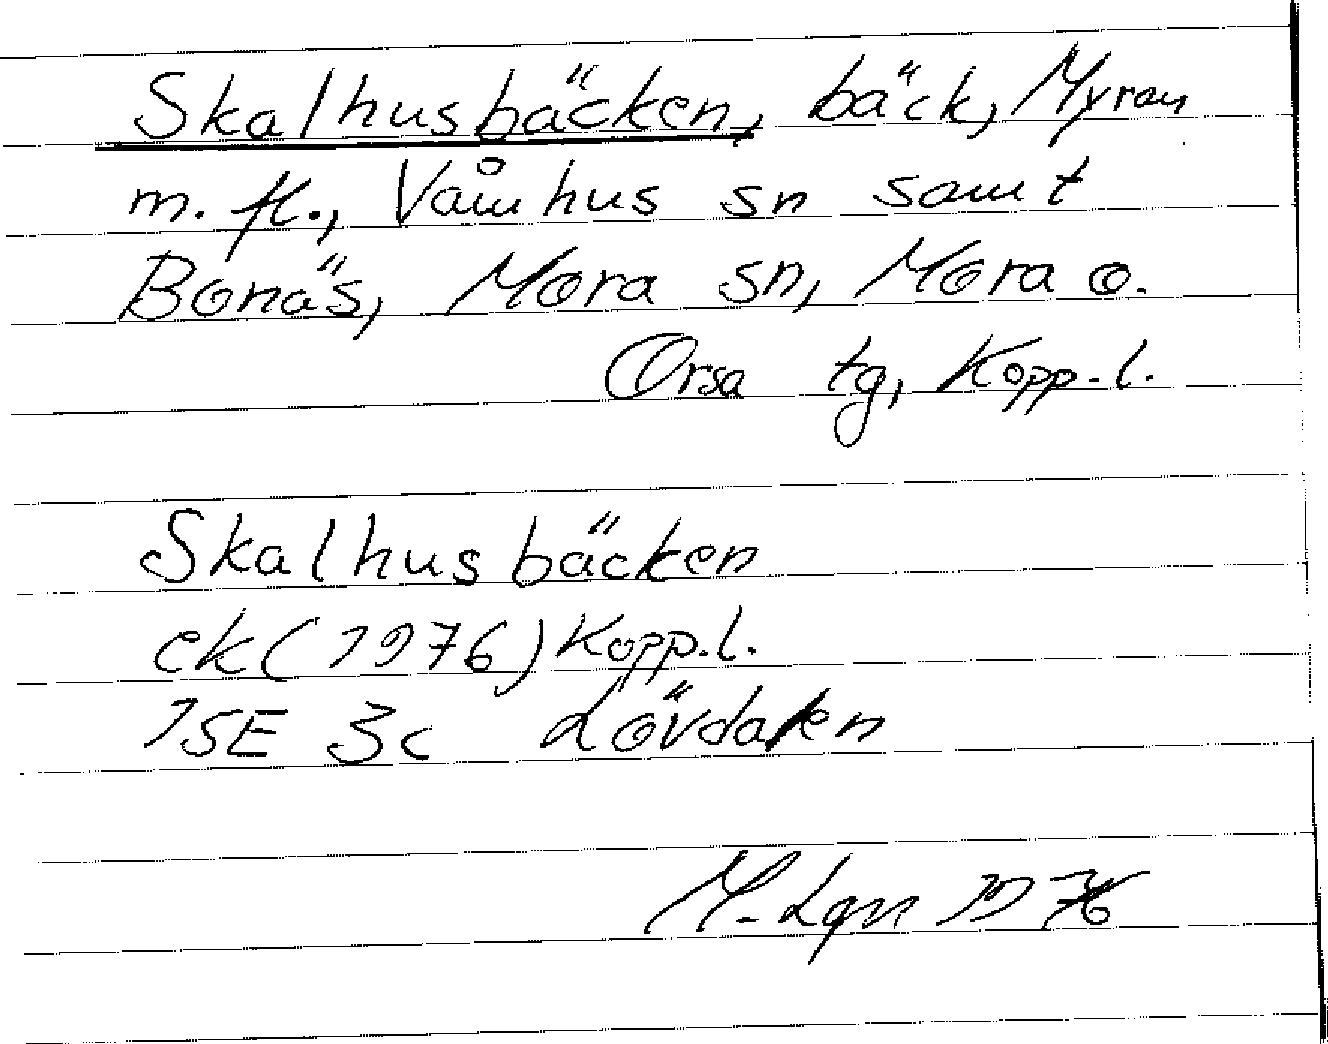 Skalhusbäcken, bäck, Myran
m. fl., Våmhus sn samt
Bonäs, Mora sn, Mora o.
Orsa tg, Kopp. l.
Skalhusbäcken
ek (1976) Kopp. l.
15E 3c Lövdalen
M. Lgn 1976